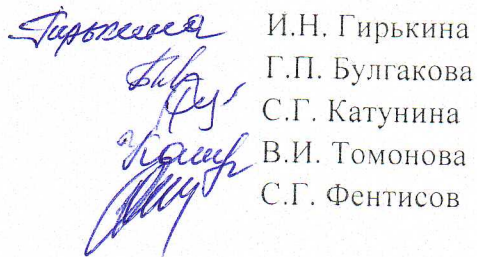 Гирькина И.Н. Гирькина
Г.П. Булгакова
С.Г. Катунина
В.И. Томонова
С.Г. Фентисов